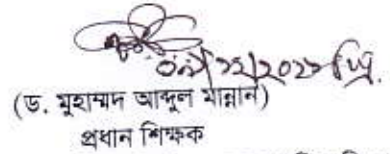 ০৯/১২/২০২১ খ্রি.
(ড. মুহাম্মদ আব্দুল মান্নান)
প্রধান শিক্ষক